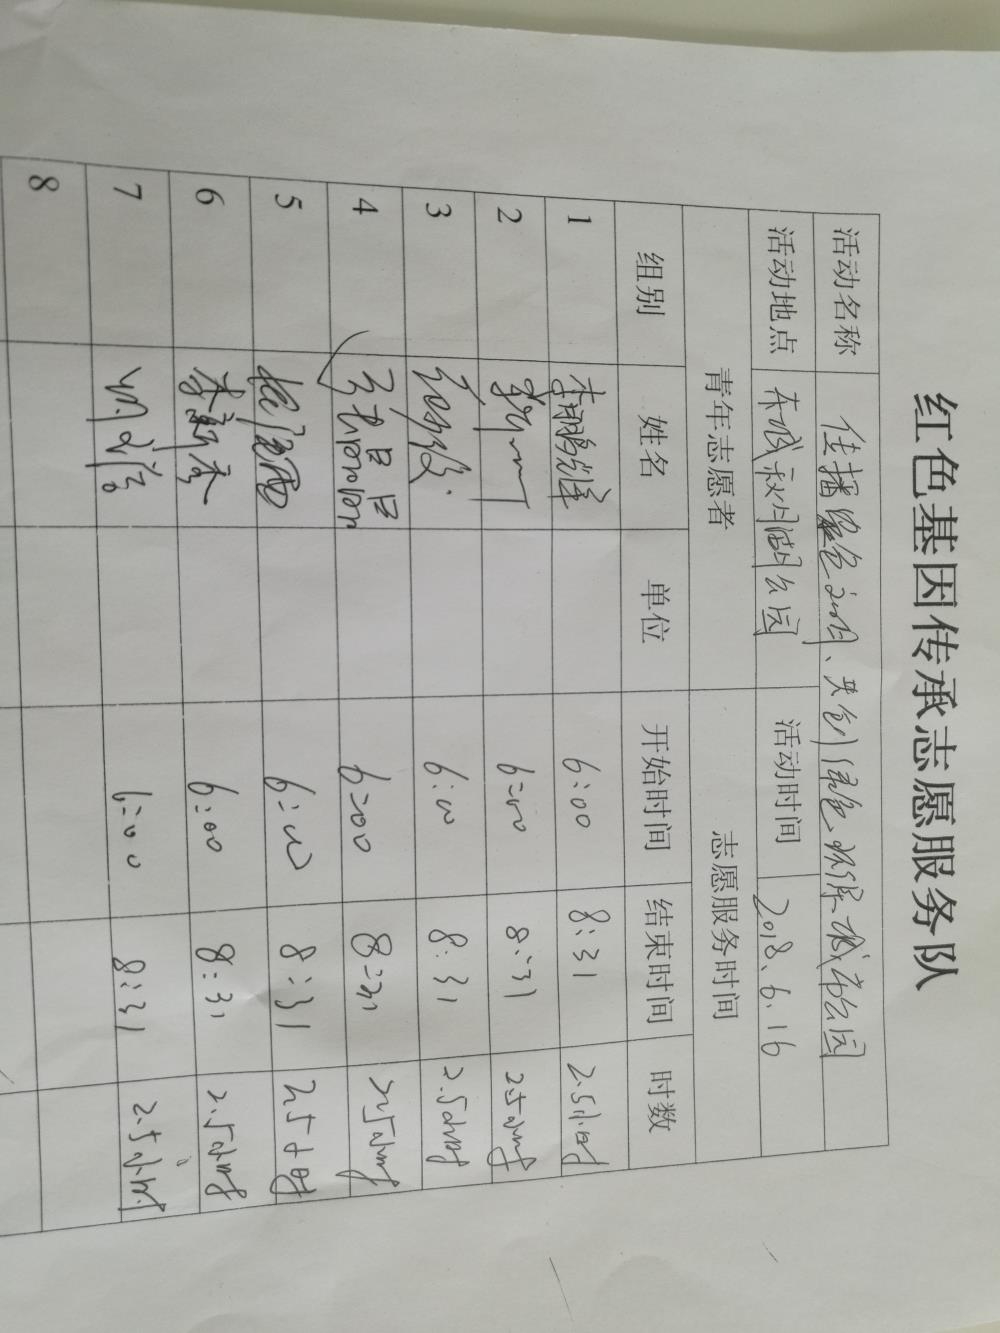 红色基因传承志愿服务队
活动名称 传播 色 、共创绿色环保 城市公园
活动地点 东城秋月湖公园 活动时间 2018.6.16
青年志愿者 志愿服务时间
组别 姓名 单位 开始时间 结束时间 时数
1 李鹏 6:00 8:31 2.5小时
2 6:00 8:31 2.5小时
3 6:00 8:31 2.5小时
4 6:00 8:31 2.5小时
5 6:00 8:31 2.5小时
6 李新秀 6:00 8:31 2.5小时
7 6:00 8:31 2.5小时
8